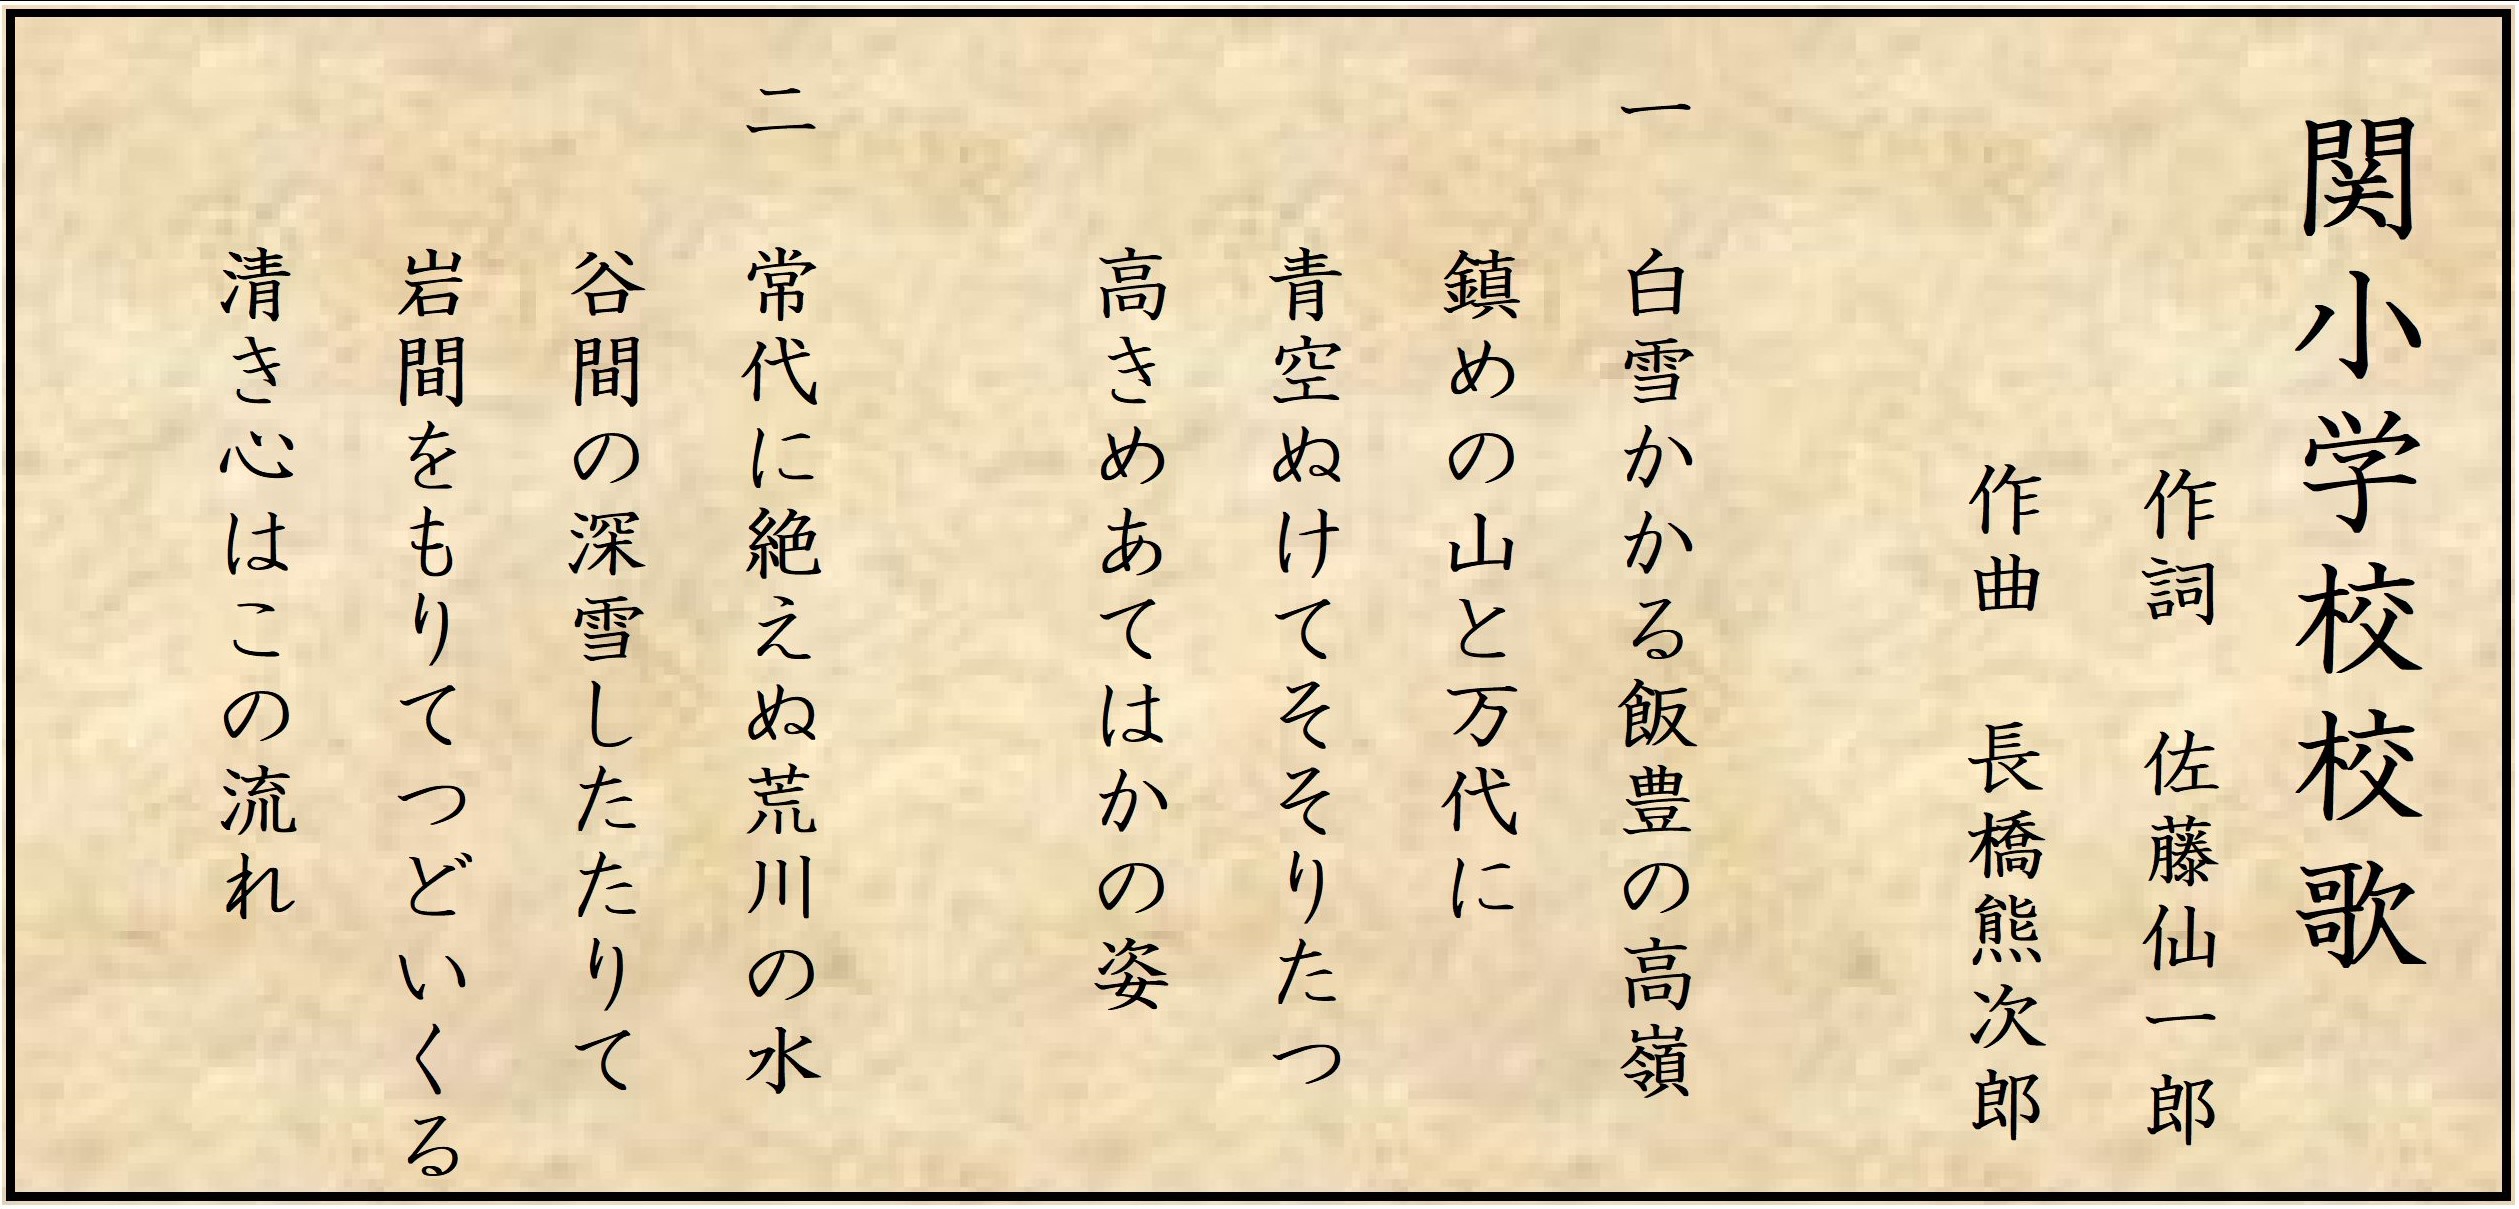 関小学校校歌
作詞　佐藤仙一郎
作曲　長橋熊次郎
一　白雪かかる飯豊の高嶺
鎮めの山と万代に
青空ぬけてそそりたつ
高きめあてはかの姿
二　常代に絶えぬ荒川の水
谷間の深雪したたりて
岩間をもりてつどいくる
清き心はこの流れ